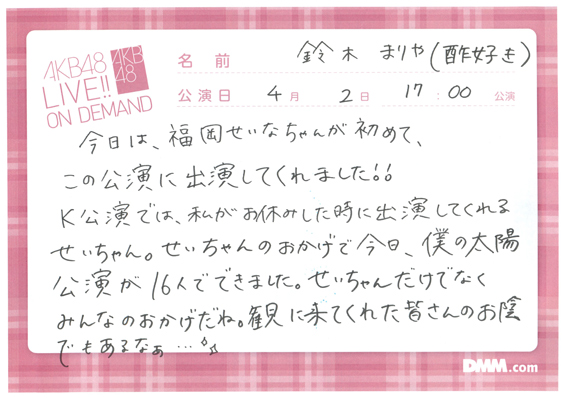 AKB48
LIVE!!
ON DEMAND
AKB
48
名前 鈴木 まりや(酢好き)
公演日 4月 2日 17:00 公演
今日は、福岡せいなちゃんが初めて、
この公演に出演してくれました!!
K公演では、私がお休みした時に出演してくれる
せいちゃん。せいちゃんのおかげで今日、僕の太陽
公演が16人でできました。せいちゃんだけでなく
みんなのおかげだね。観に来てくれた皆さんのお陰
でもあるなぁ…
DMM.com